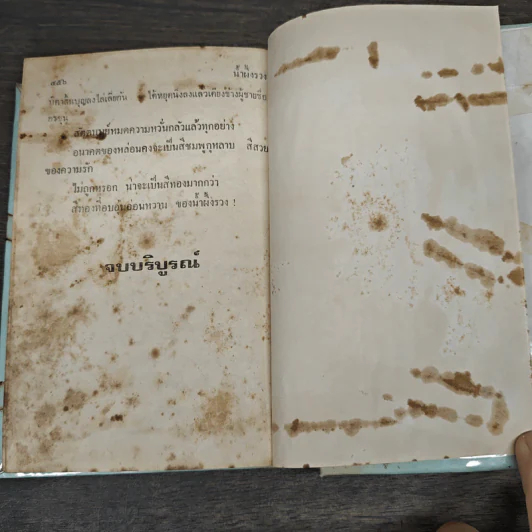 ๗๕๖
น้ำผึ้งรวง
ได้หยุดนิ่งลงแล้วเคียงข้างผู้ชายชื่อ
อรชุน
สุดมนัยหมดความหวั่นกลัวแล้วทุกอย่าง
อนาคตของหล่อนคงจะเป็นสีชมพูกุหลาบ สีสวย
ของความรัก
ไม่ถูกหรอก น่าจะเป็นสีทองมากกว่า
สีทองที่อบอุ่นอ่อนหวาน ของน้ำผึ้งรวง !
จบบริบูรณ์